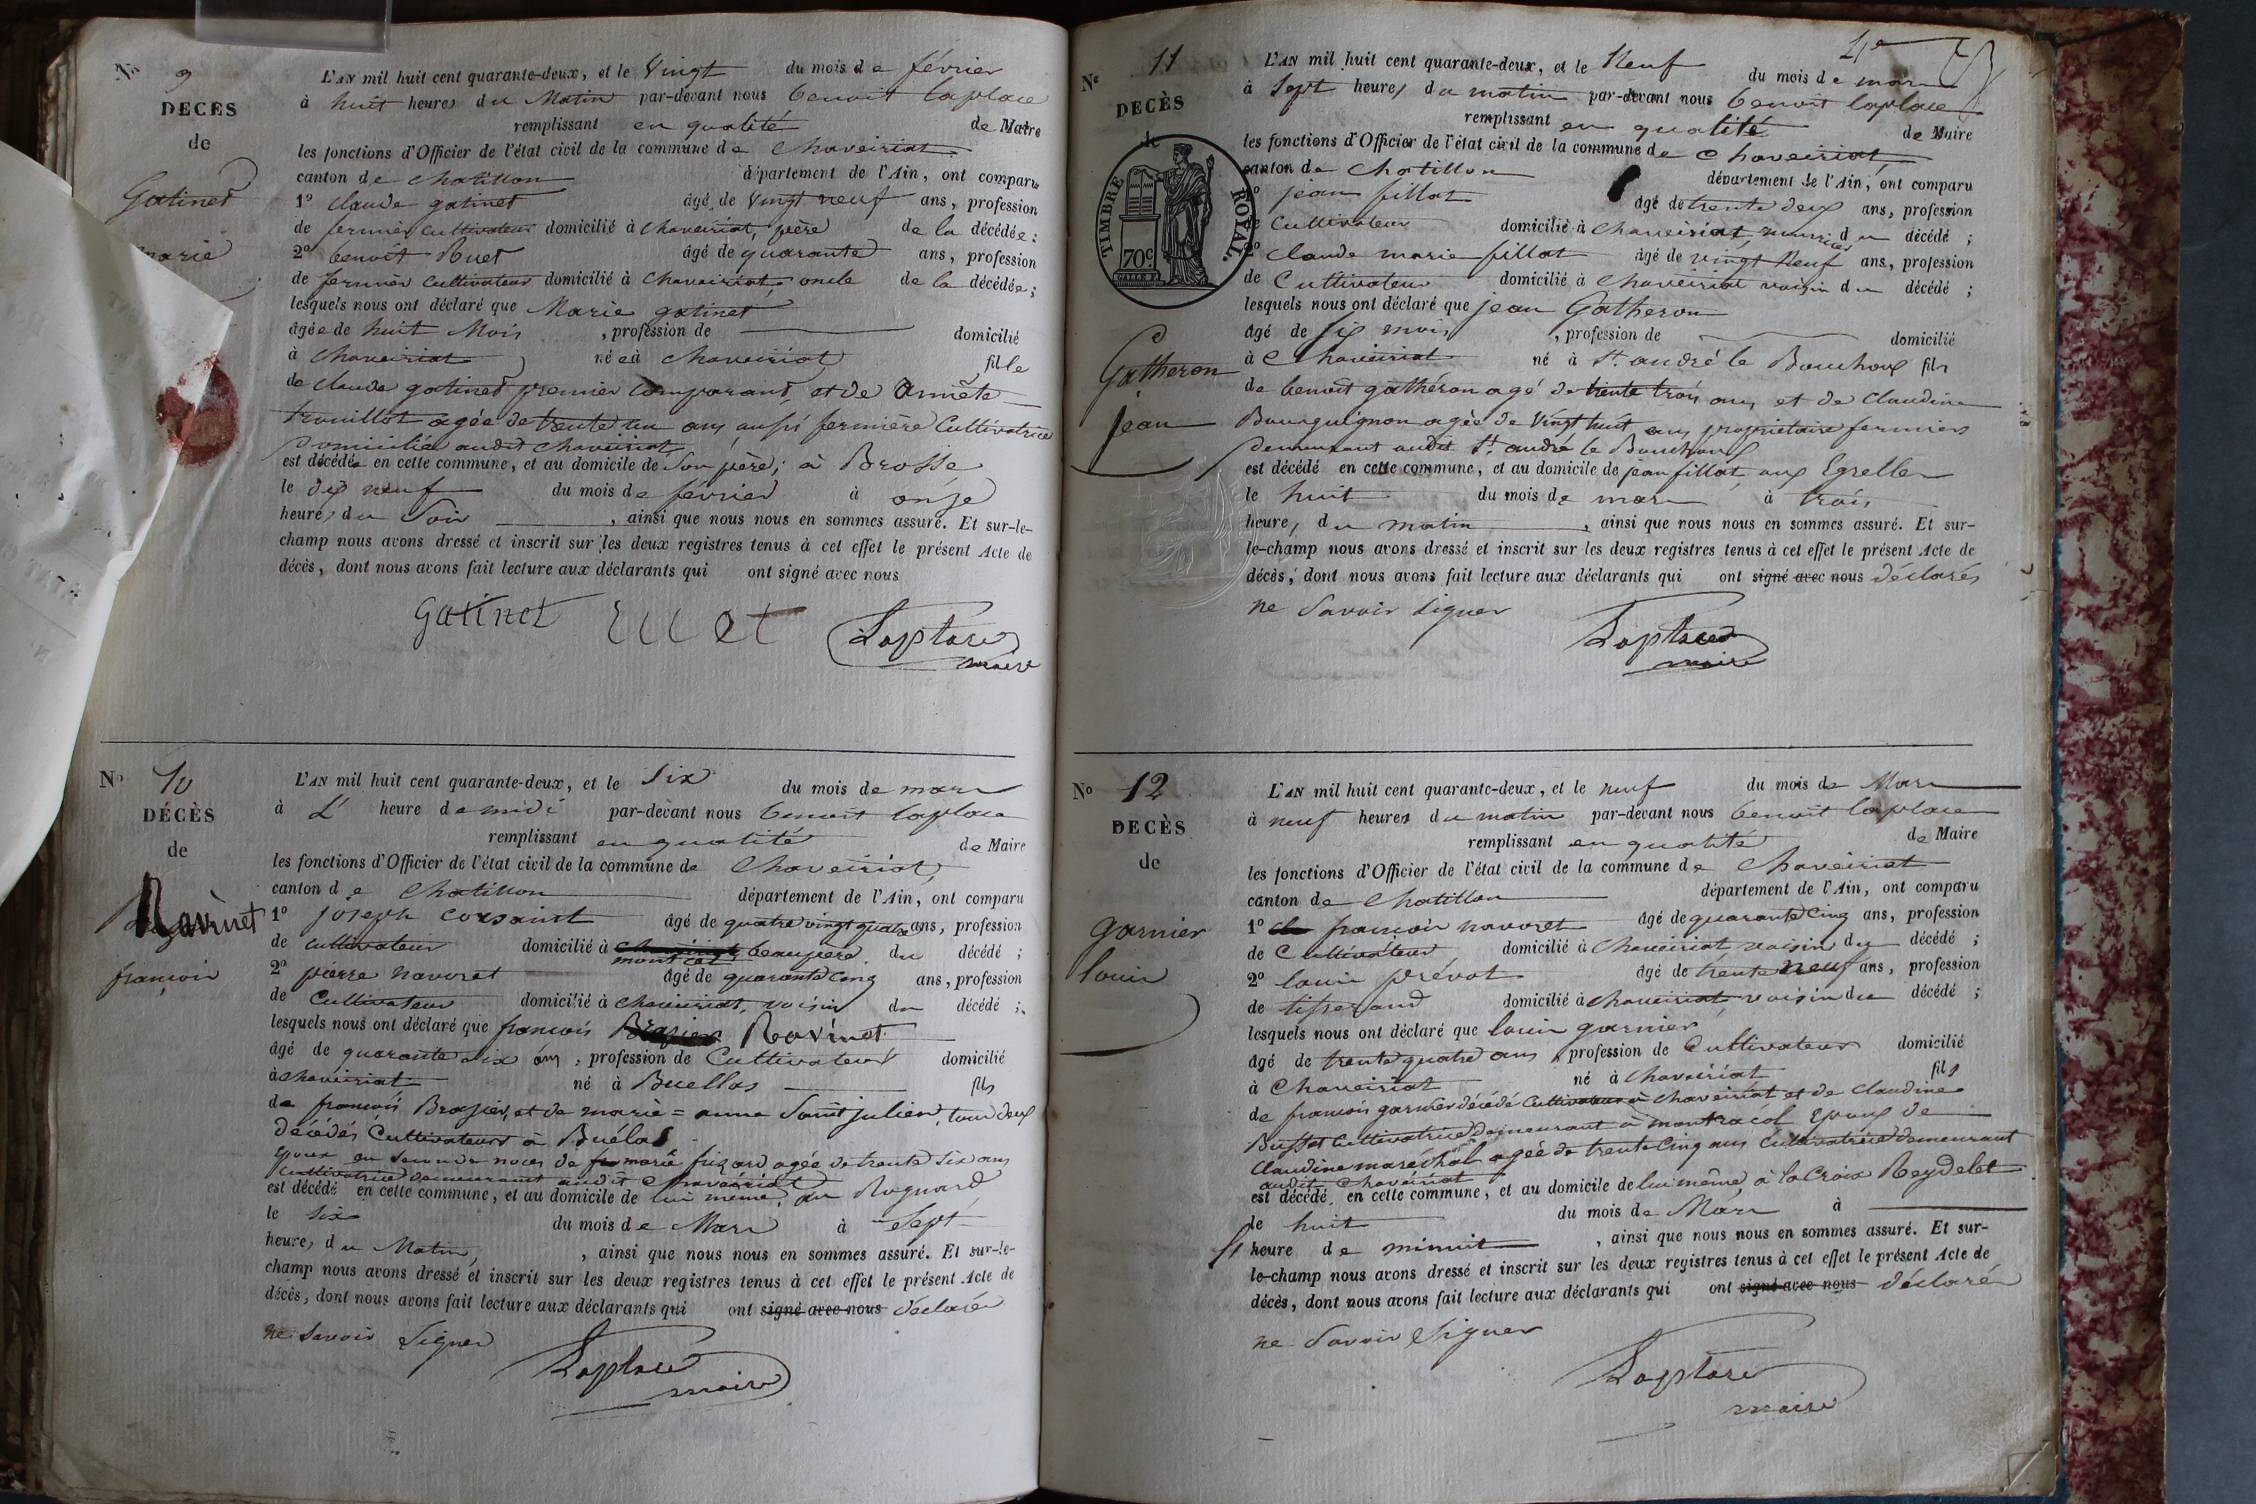 No 9
DÉCÈS
de
Gatinet
marie
L'AN mil huit cent quarante-deux, et le Vingt du mois de février
à huit heures du Matin par-devant nous benoit laplace
remplissant en qualité de Maire
les fonctions d'Officier de l'état civil de la commune de Chaveiriat
canton de Chatillon département de l'Ain, ont comparu
1º Claude gatinet âgé de Vingt neuf ans, profession
de fermier Cultivateur domicilié à Chaveiriat, père de la décédée :
2º benoît Ruet âgé de quarante ans, profession
de fermier Cultivateur domicilié à Chaveiriat, oncle de la décédée ;
lesquels nous ont déclaré que Marie gatinet
âgée de huit Mois , profession de domicilié
à Chaveiriat née à Chaveiriat fille
de claude gatinet premier comparant, et de Annête
trouillot agée de trente un ans, aussi fermière Cultivatrice
Domiciliée audit Chaveiriat
est décédée en cette commune, et au domicile de Son père, à Brosse
le dix neuf du mois de février à onze
heures du Soir , ainsi que nous nous en sommes assuré. Et sur-le-
champ nous avons dressé et inscrit sur les deux registres tenus à cet effet le présent Acte de
décès, dont nous avons fait lecture aux déclarants qui ont signé avec nous
Gatinet Ruet Laplace
maire
No 10
DÉCÈS
de
Ravinet
françois
L'AN mil huit cent quarante-deux, et le Six du mois de mars
à L' heure de midi par-devant nous benoit laplace
remplissant en qualité de Maire
les fonctions d'Officier de l'état civil de la commune de Chaveiriat,
canton de Chatillon département de l'Ain, ont comparu
1º joseph corsaint âgé de quatre vingt quatre ans, profession
de cultivateur domicilié à Chaveiriat beaupère du décédé ;
montcet
2º pierre navoret âgé de quarante cinq ans, profession
de Cultivateur domicilié à Chaveiriat, voisin du décédé ;
lesquels nous ont déclaré que françois Brazier Ravinet
âgé de quarante six ans , profession de Cultivateur domicilié
à Chaveiriat né à Buellas fils
de françois Brazier, et de marie = anne Saint julien, tous deux
décédés Cultivateurs à Buélas
époux en Seconde noces de marie frizard agée de trente six ans
Cultivatrice demeurant audit Chaveiriat
est décédé en cette commune, et au domicile de lui même, au Roguard
le Six du mois de Mars à Sept
heures du Matin , ainsi que nous nous en sommes assuré. Et sur-le-
champ nous avons dressé et inscrit sur les deux registres tenus à cet effet le présent Acte de
décès, dont nous avons fait lecture aux déclarants qui ont signé avec nous déclarés
ne Savoir Signer
Laplace
maire
No 11
DÉCÈS
de
TIMBRE ROYAL.
70c.
Gatheron
jean
L'AN mil huit cent quarante-deux, et le Neuf du mois de mars
à Sept heures du matin par-devant nous benoît laplace
remplissant en qualité de Maire
les fonctions d'Officier de l'état civil de la commune de Chaveiriat,
canton de Chatillon département de l'Ain, ont comparu
1º jean fillot âgé de trente deux ans, profession
de Cultivateur domicilié à Chaveiriat, nourricier du décédé ;
2º claude marie fillot âgé de vingt Neuf ans, profession
de Cultivateur domicilié à Chaveiriat voisin du décédé ;
lesquels nous ont déclaré que jean Gatheron
âgé de Six mois , profession de domicilié
à Chaveiriat né à St. andré le Bouchoux fils
de benoît gathéron agé de trente trois ans, et de Claudine
Bourguignon agée de Vingt huit ans propriétaire fermiers
Demeurant audit St. andré le Bouchoux
est décédé en cette commune, et au domicile de jean fillot, aux Egrelles
le huit du mois de mars à trois
heures du matin , ainsi que nous nous en sommes assuré. Et sur-
le-champ nous avons dressé et inscrit sur les deux registres tenus à cet effet le présent Acte de
décès, dont nous avons fait lecture aux déclarants qui ont signé avec nous déclarés
ne Savoir Signer
Laplace
maire
No 12
DÉCÈS
de
garnier
louis
L'AN mil huit cent quarante-deux, et le neuf du mois de Mars
à neuf heures du matin par-devant nous benoit laplace
remplissant en qualité de Maire
les fonctions d'Officier de l'état civil de la commune de Chaveiriat
canton de Chatillon département de l'Ain, ont comparu
1º françois navoret âgé de quarante Cinq ans, profession
de Cultivateur domicilié à Chaveiriat, voisin du décédé ;
2º louis prévot âgé de trente neuf ans, profession
de tisserand domicilié à Chaveiriat, voisin du décédé ;
lesquels nous ont déclaré que louis garnier
âgé de trente quatre ans , profession de Cultivateur domicilié
à Chaveiriat né à Chaveiriat fils
de françois garnier décédé Cultivateur à Chaveiriat et de Claudine
Buffet Cultivatrice Demeurant à montracol époux de
Claudine maréchal agée de trente Cinq ans Cultivatrice demeurant
audit Chaveiriat
est décédé en cette commune, et au domicile de lui même, à la Croix Reydelet
le huit du mois de Mars à
heure de minuit , ainsi que nous nous en sommes assuré. Et sur-
le-champ nous avons dressé et inscrit sur les deux registres tenus à cet effet le présent Acte de
décès, dont nous avons fait lecture aux déclarants qui ont signé avec nous déclarés
ne Savoir Signer
Laplace
maire